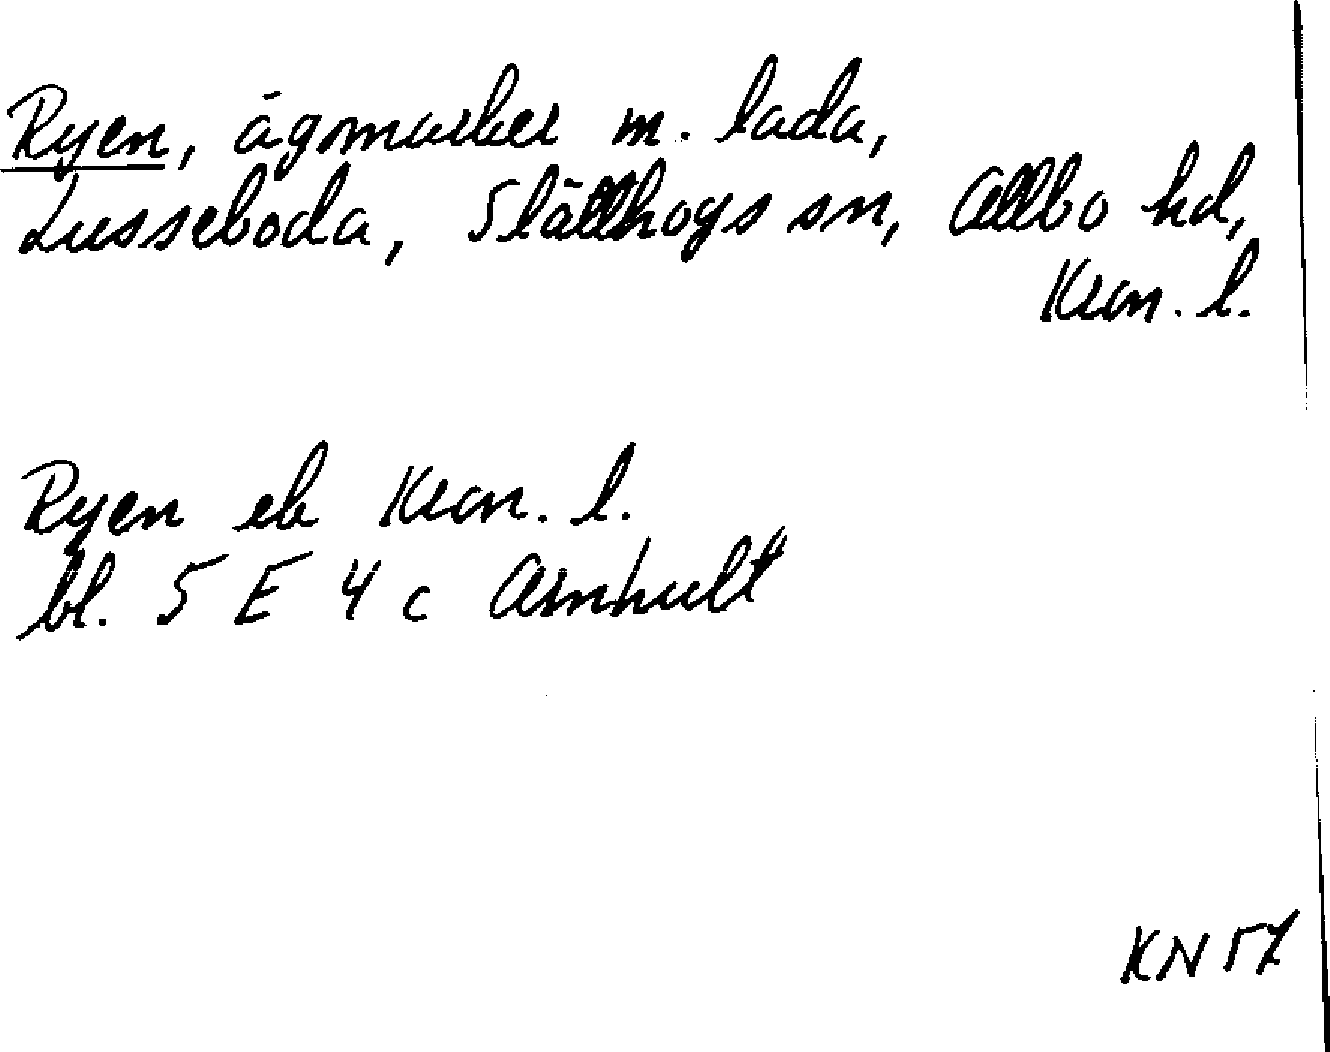 Ryen, ägomarker m. lada,
Lusseboda, Slätthögs sn, Allbo hd,
Kron. l.
Ryen eb Kron. l.
bl. 5 E 4 c Arnhult
KN 57